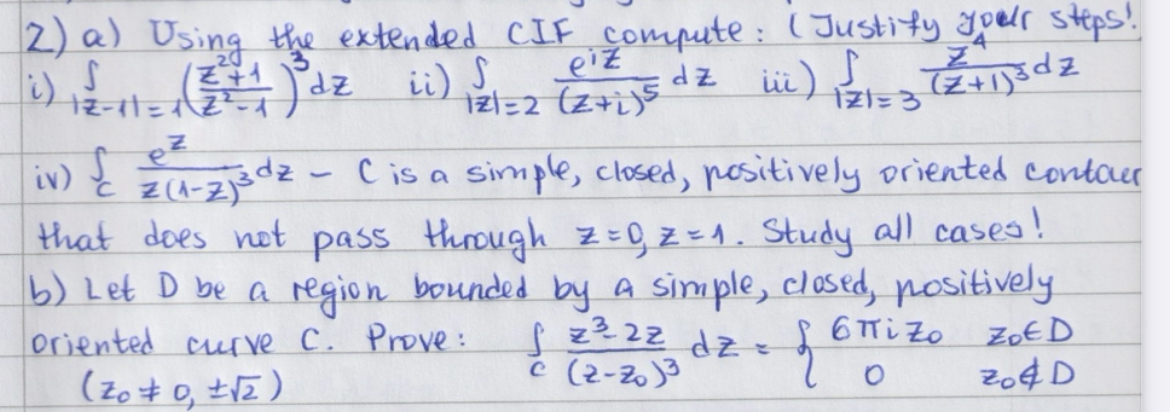 2) a) Using the extended CIF compute: (Justify your steps!
i) ∫_{|z-1|=1} ((z²+1)/(z²-1))³ dz ii) ∫_{|z|=2} e^{iz}/(z+i)⁵ dz iii) ∫_{|z|=3} z⁴/(z+1)³ dz
iv) ∫_C e^z/(z(1-z)³) dz - C is a simple, closed, positively oriented contour
that does not pass through z=0, z=1. Study all cases!
b) Let D be a region bounded by a simple, closed, positively
oriented curve C. Prove: ∫_C (z³-2z)/(z-z₀)³ dz = { 6πi z₀ z₀∈D
0 z₀∉D
(z₀ ≠ 0, ±√2)